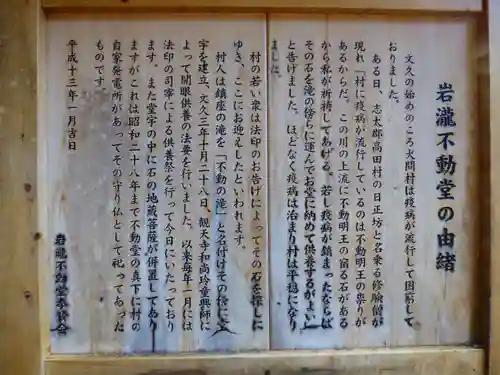 岩瀧不動堂の由緒
文久の始めのころ大間村は疫病が流行して困窮して
おりました。
ある日、志太郡高田村の日正坊と名乗る修験僧が
現れ「村に疫病が流行しているのは不動明王の祟りが
あるからだ。この川の上流に不動明王の宿る石がある
から私が祈祷してあげる。若し疫病が鎮まったならば
その石を滝の傍らに運んでお堂に納めて供養するがよい」
と告げました。ほどなく疫病は治まり村は平穏になり
ました。
村の若い衆は法印のお告げによってその石を捜しに
ゆき、ここにお迎えしたといわれます。
村人は鎮座の滝を「不動の滝」と名付けその傍に堂
宇を建立、文久三年十月二十八日、観天寺和尚玲童興師に
よって開眼供養の法要を行いました。以来毎年一月には
法印の司宰による供養祭を行って今日にいたっており
ます。また堂宇の中に石の地蔵菩薩が併置してあり
ますがこれは昭和二十八年まで不動堂の真下に村の
自家発電所があってその守り仏として祀ってあった
ものです。
平成十三年一月吉日
岩瀧不動堂奉賛会